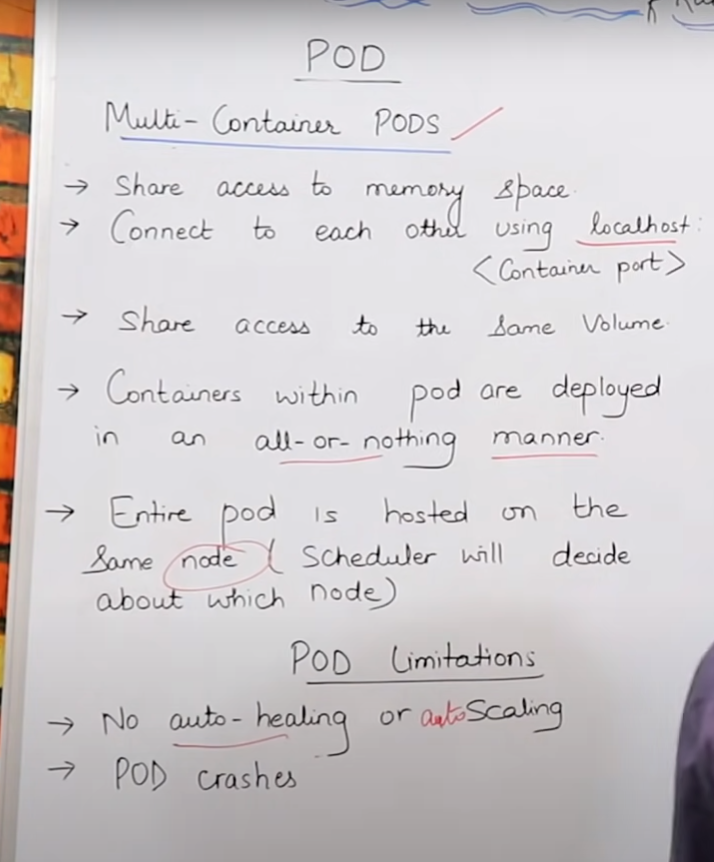 POD
Multi-Container PODS
→ Share access to memory space.
→ Connect to each other using localhost:
<Container port>
→ Share access to the same Volume.
→ Containers within pod are deployed
in an all-or-nothing manner.
→ Entire pod is hosted on the
same node (Scheduler will decide
about which node)
POD Limitations
→ No auto-healing or autoScaling
→ POD crashes